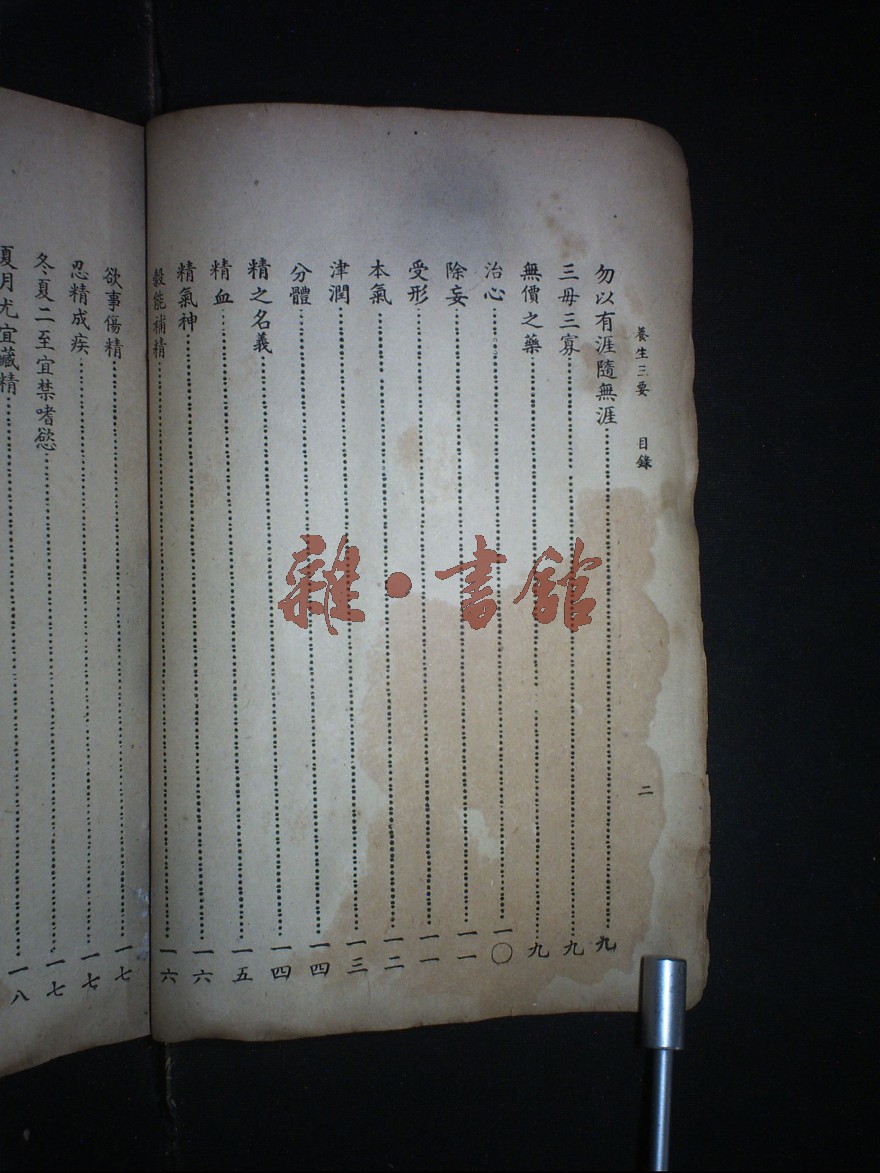 養生三要 目錄 二
勿以有涯隨無涯……九
三毋三寡……九
無價之藥……九
治心……一〇
除妄……一一
受形……一一
本氣……一二
津潤……一三
分體……一四
精之名義……一四
精血……一五
精氣神……一六
穀能補精……一六
欲事傷精……一七
忍精成疾……一七
冬夏二至宜禁嗜慾……一七
夏月尤宜藏精……一八
雜·書館